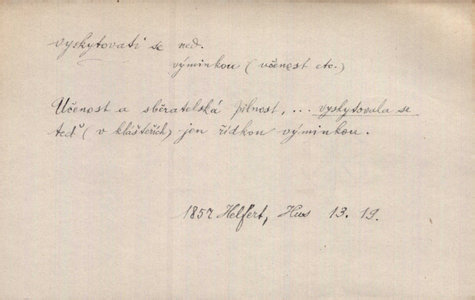 vyskytovati se ned.
výminkou (učenost etc.)
Učenost a sběratelská pilnost, ... vyskytovala se
teď (v klášteřích) jen řídkou výminkou.
1857 Helfert, Hus 13. 19.